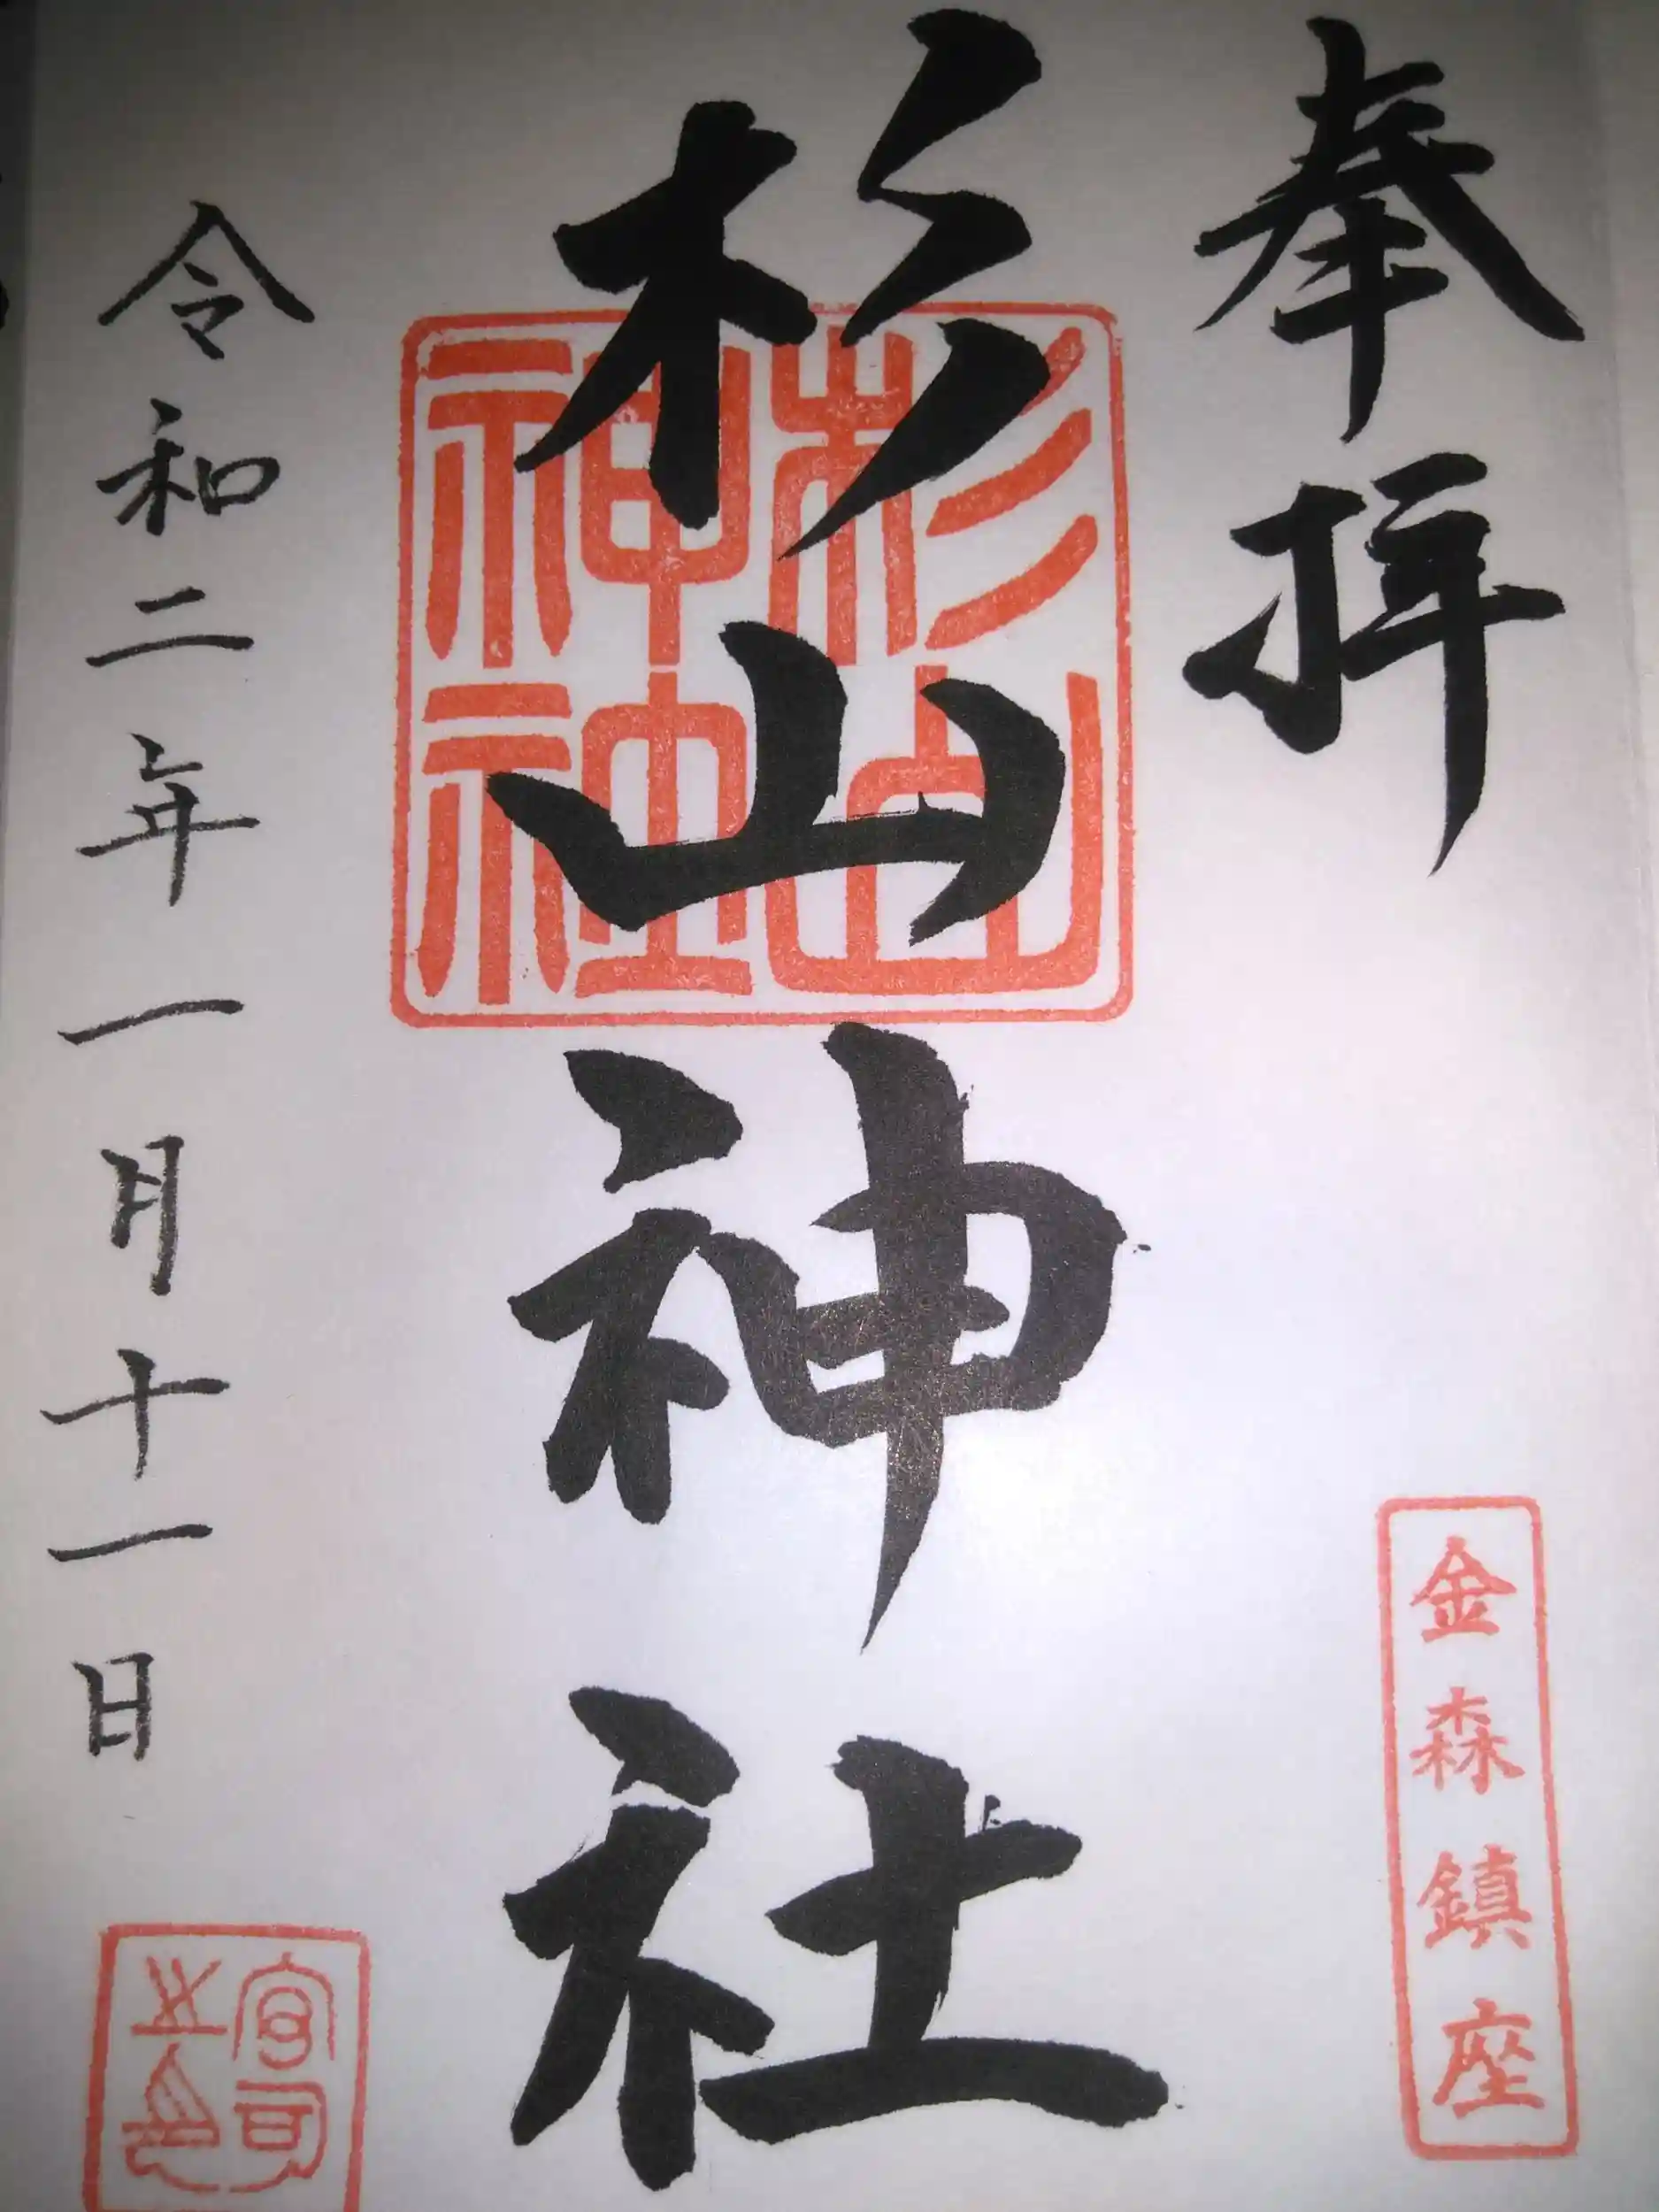 奉拝
金森鎮座
杉山神社
杉山
神社
令和二年一月十一日
宮司
之印